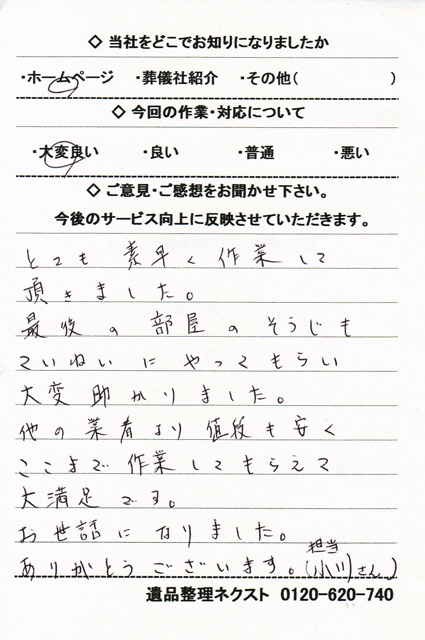 ◇ 当社をどこでお知りになりましたか
・ホームページ ・葬儀社紹介 ・その他( )
◇ 今回の作業・対応について
・大変良い ・良い ・普通 ・悪い
◇ ご意見・ご感想をお聞かせ下さい。
今後のサービス向上に反映させていただきます。
とても 素早く 作業して
頂きました。
最後の 部屋のそうじも
ていねいに やってもらい
大変 助かりました。
他の業者より 値段も安く
ここまで 作業してもらえて
大満足です。
お世話になりました。
担当
ありがとうございます。(小川さん)
遺品整理ネクスト 0120-620-740